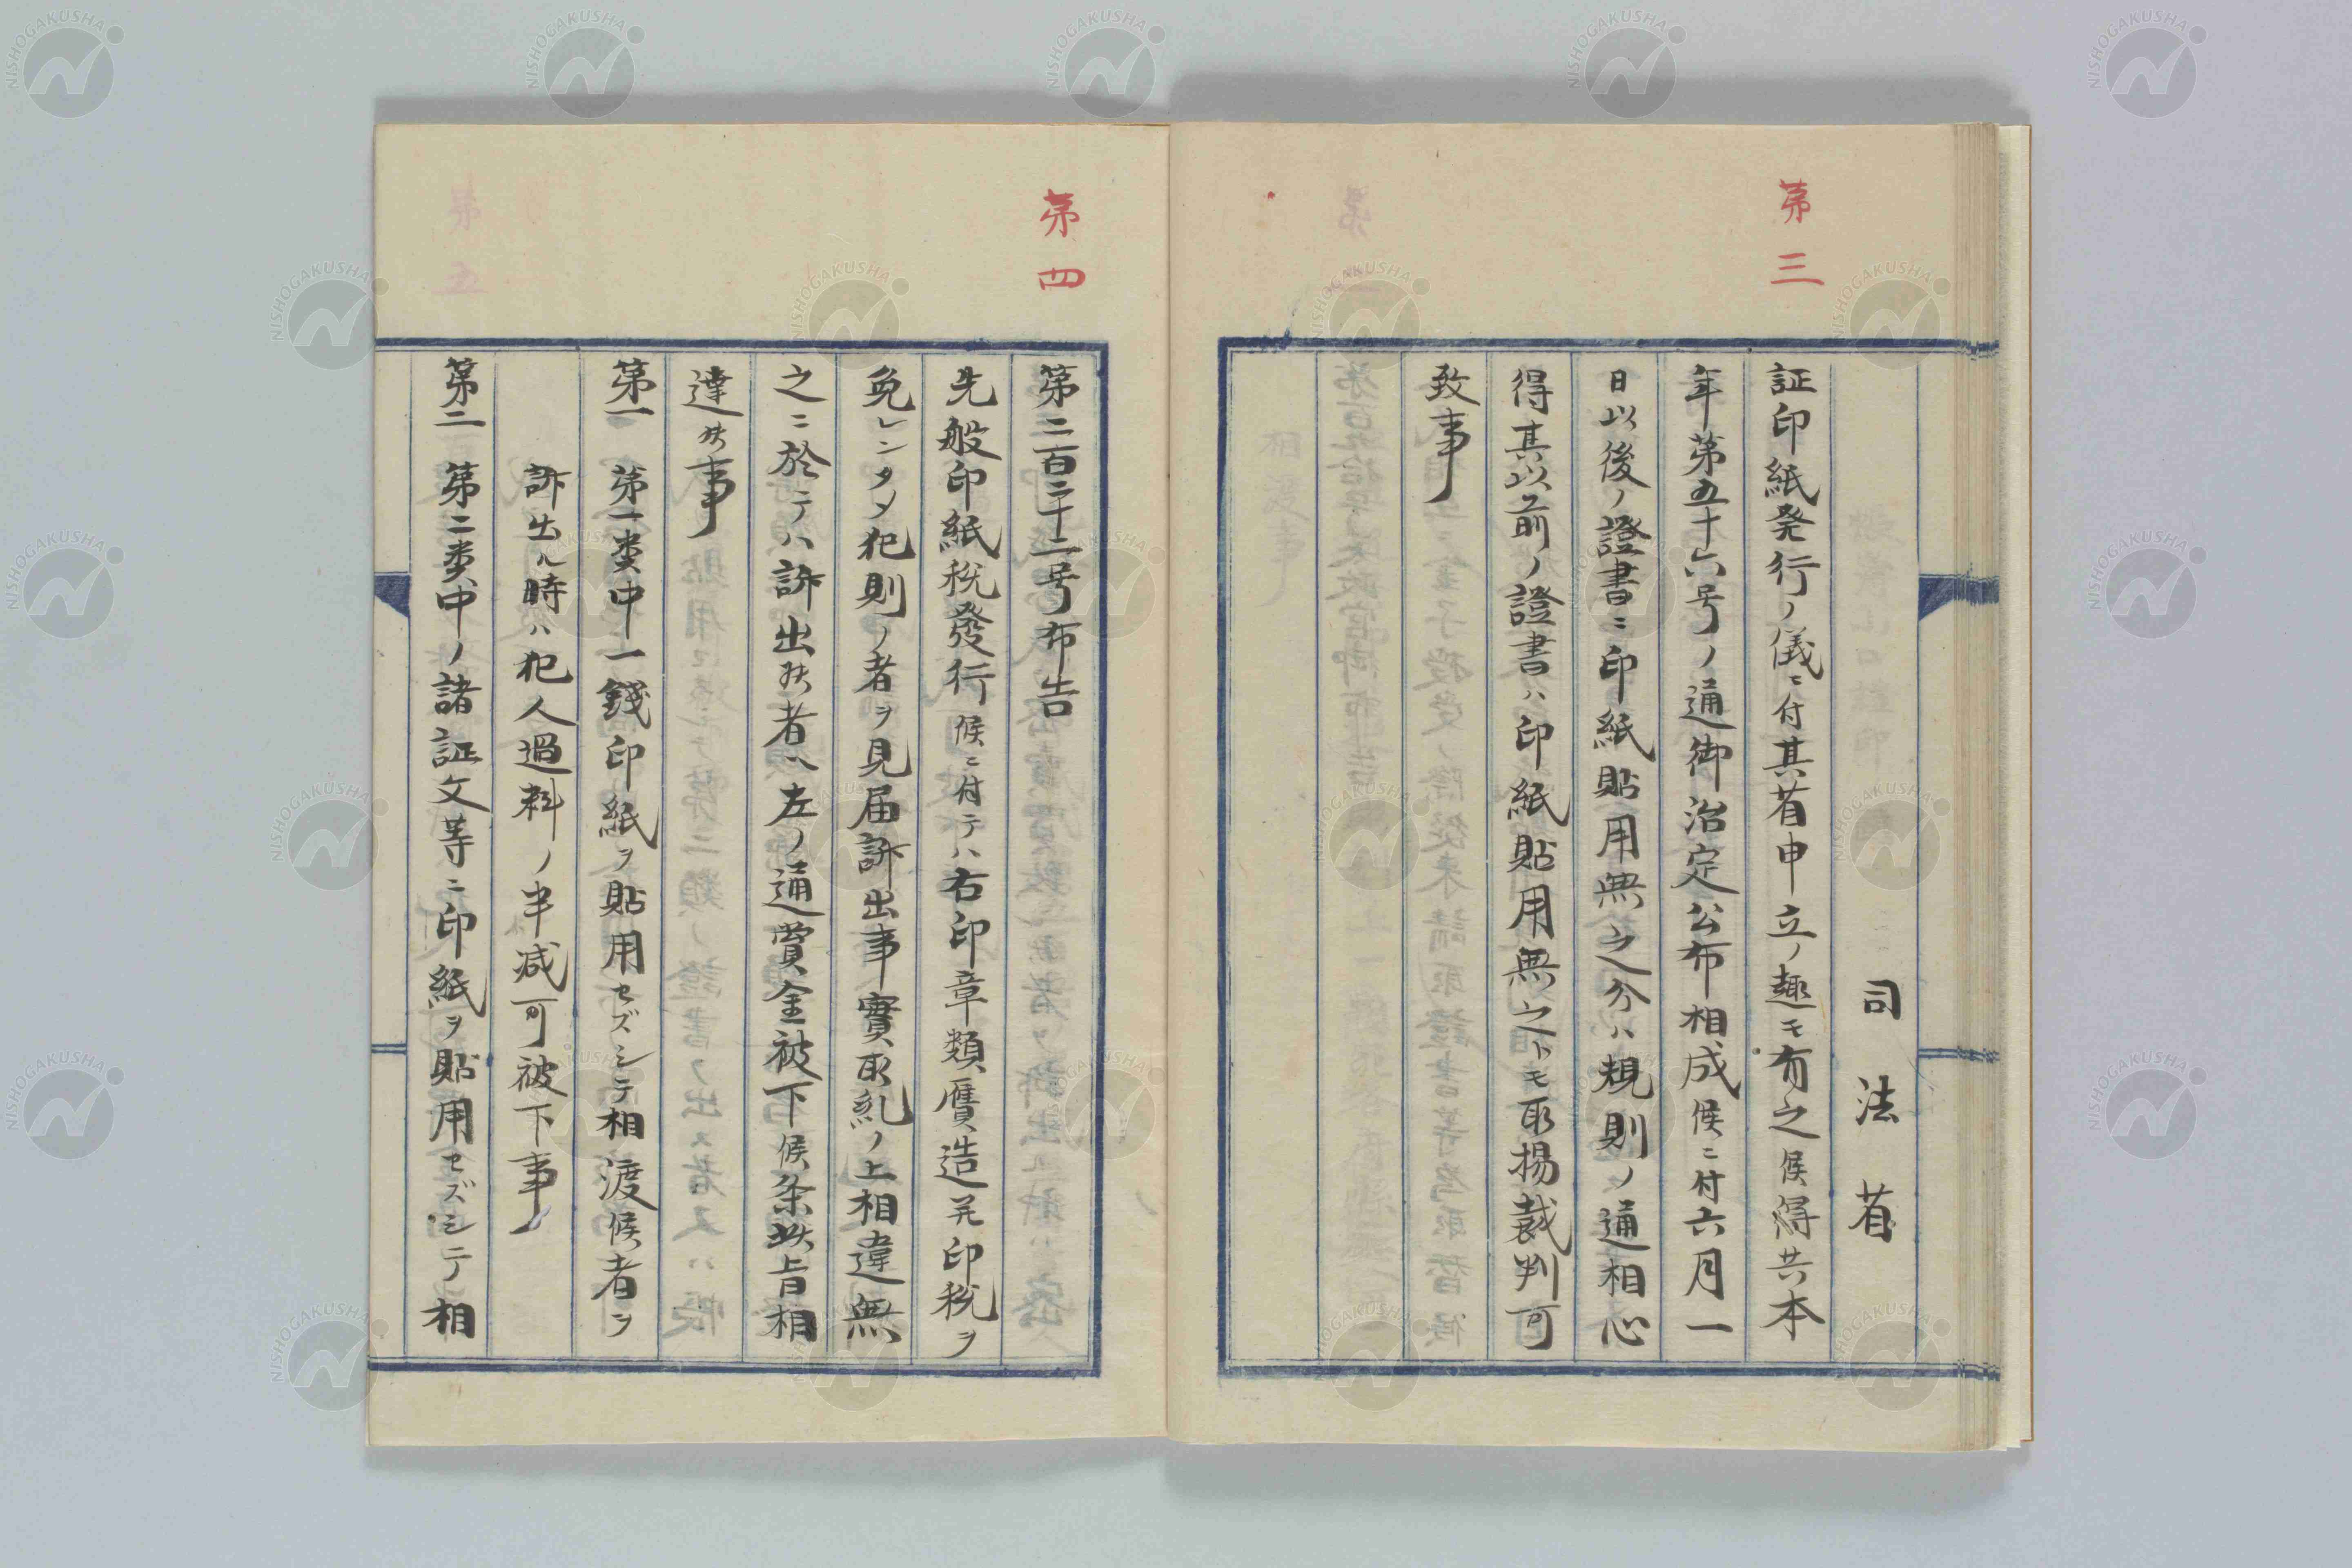 第三
司法省
証印紙発行ノ儀ニ付其省申立ノ趣モ有之候得共本
年第五十六号ノ通御治定公布相成候ニ付六月一
日以後ノ證書ニ印紙貼用無之分ハ規則ノ通相心
得其以前ノ證書ハ印紙貼用無之トモ取揚裁判可
致事
第四
第二百二十二号布告
先般印紙税發行候ニ付テハ右印章類贋造并印税ヲ
免レンタメ犯則ノ者ヲ見届訴出事實取糺ノ上相違無
之ニ於テハ訴出候者ハ左ノ通賞金被下候条此旨相
達候事
第一 第一类中一錢印紙ヲ貼用セズシテ相渡候者ヲ
訴出ル時ハ犯人過料ノ半减可被下事
第二 第二类中ノ諸証文等ニ印紙ヲ貼用セズシテ相
NISHOGAKUSHA